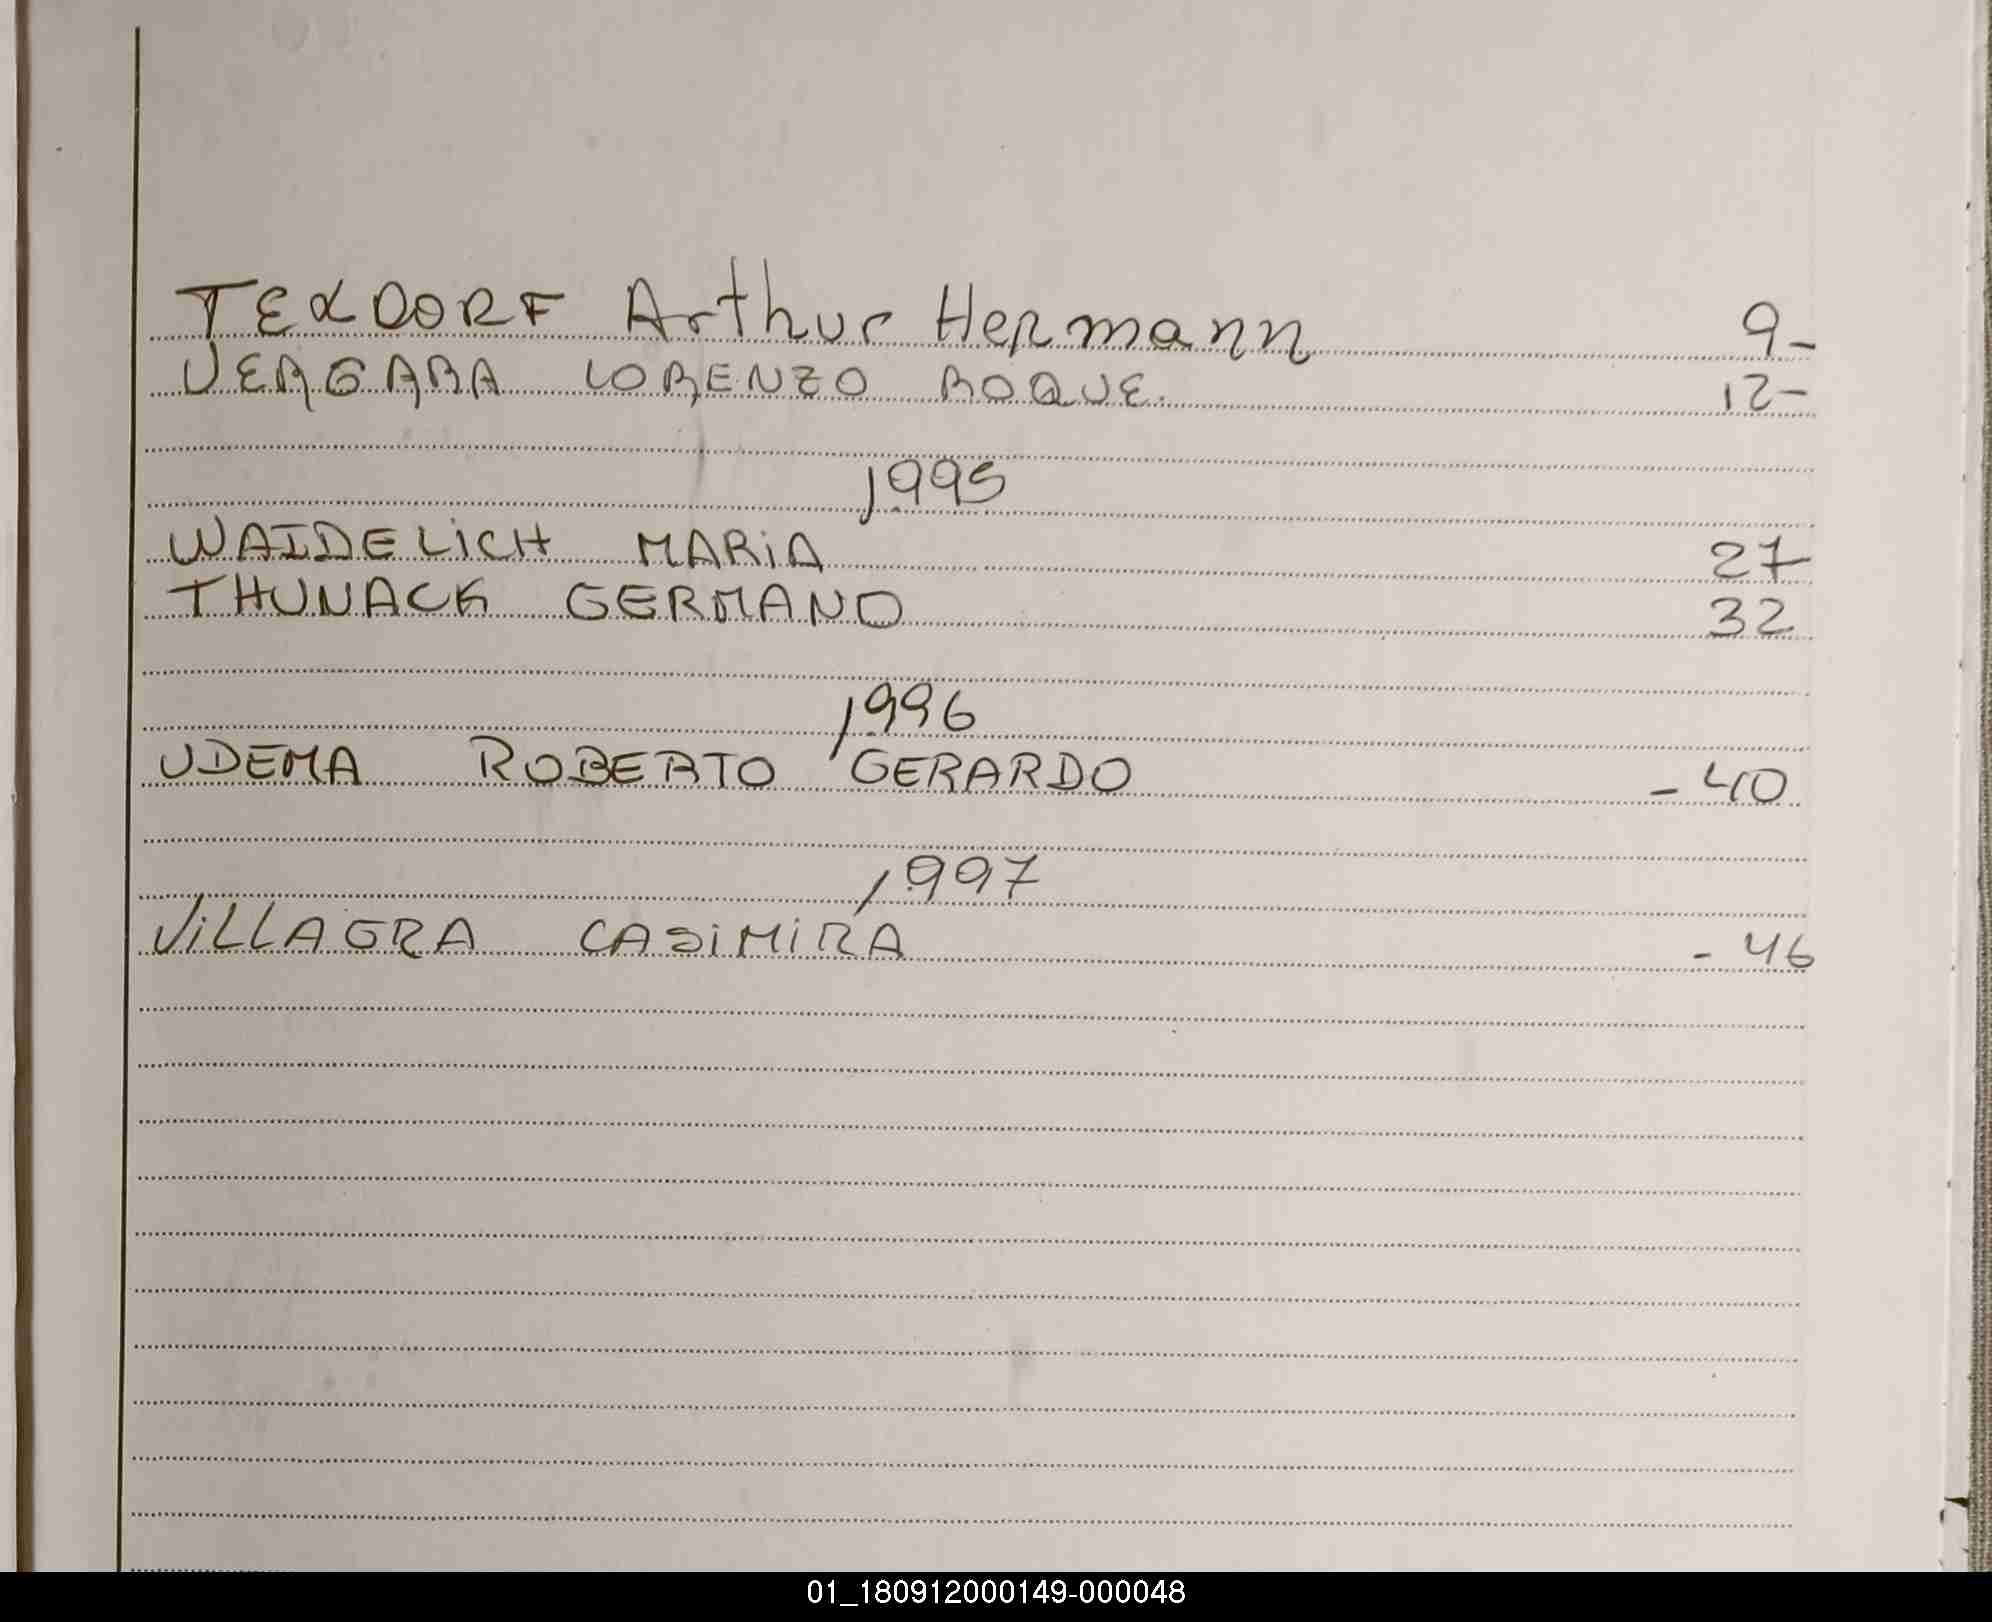 TEXDORF Arthur Hermann 9-
VERGARA LORENZO ROQUE. 12-
1995
WAIDELICH MARIA 27
THUNACK GERMANO 32
1996
UDEMA ROBERTO GERARDO - 40
1997
VILLAGRA CASIMIRA - 46
01_180912000149-000048